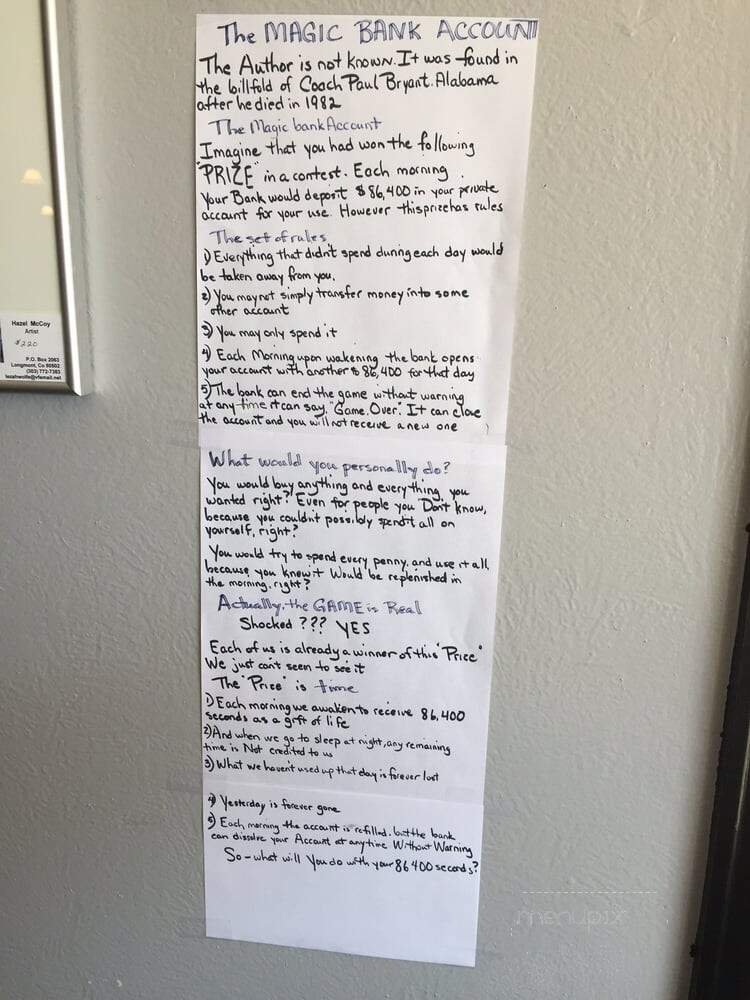 The MAGIC BANK ACCOUNT
The Author is not known. It was found in
the billfold of Coach Paul Bryant. Alabama
after he died in 1982
The Magic bank Account
Imagine that you had won the following
"PRIZE" in a contest. Each morning
Your Bank would deposit $86,400 in your private
account for your use. However this prize has rules
The set of rules
1) Everything that didn't spend during each day would
be taken away from you.
2) You may not simply transfer money into some
other account
3) You may only spend it
4) Each Morning upon wakening the bank opens
your account with another $86,400 for that day
5) The bank can end the game without warning
at any time it can say. "Game Over". It can close
the account and you will not receive a new one
What would you personally do?
You would buy anything and everything, you
wanted right? Even for people you Don't know,
because you couldn't possibly spend it all on
yourself, right?
You would try to spend every penny, and use it all,
because you knew it Would be replenished in
the morning, right?
Actually, the GAME is Real
Shocked ??? YES
Each of us is already a winner of this "Price"
We just can't seem to see it
The "Price" is time
1) Each morning we awaken to receive 86,400
seconds as a gift of life
2) And when we go to sleep at night, any remaining
time is Not credited to us
3) What we haven't used up that day is forever lost
4) Yesterday is forever gone
5) Each morning the account is refilled, but the bank
can dissolve your Account at anytime Without Warning
So - what will You do with your 86400 seconds?
Hazel McCoy
Artist
$220
P.O. Box 2063
Longmont, Co 80502
(303) 772-7383
menupix